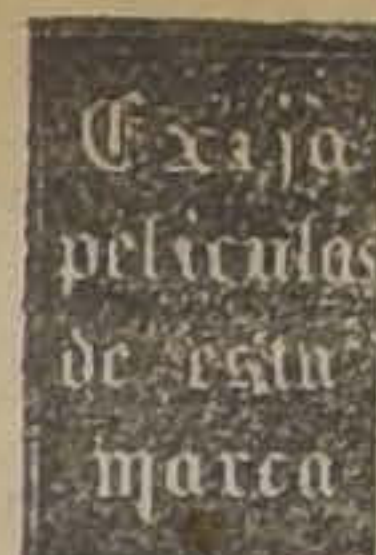 Exija
películas
de esta
marca